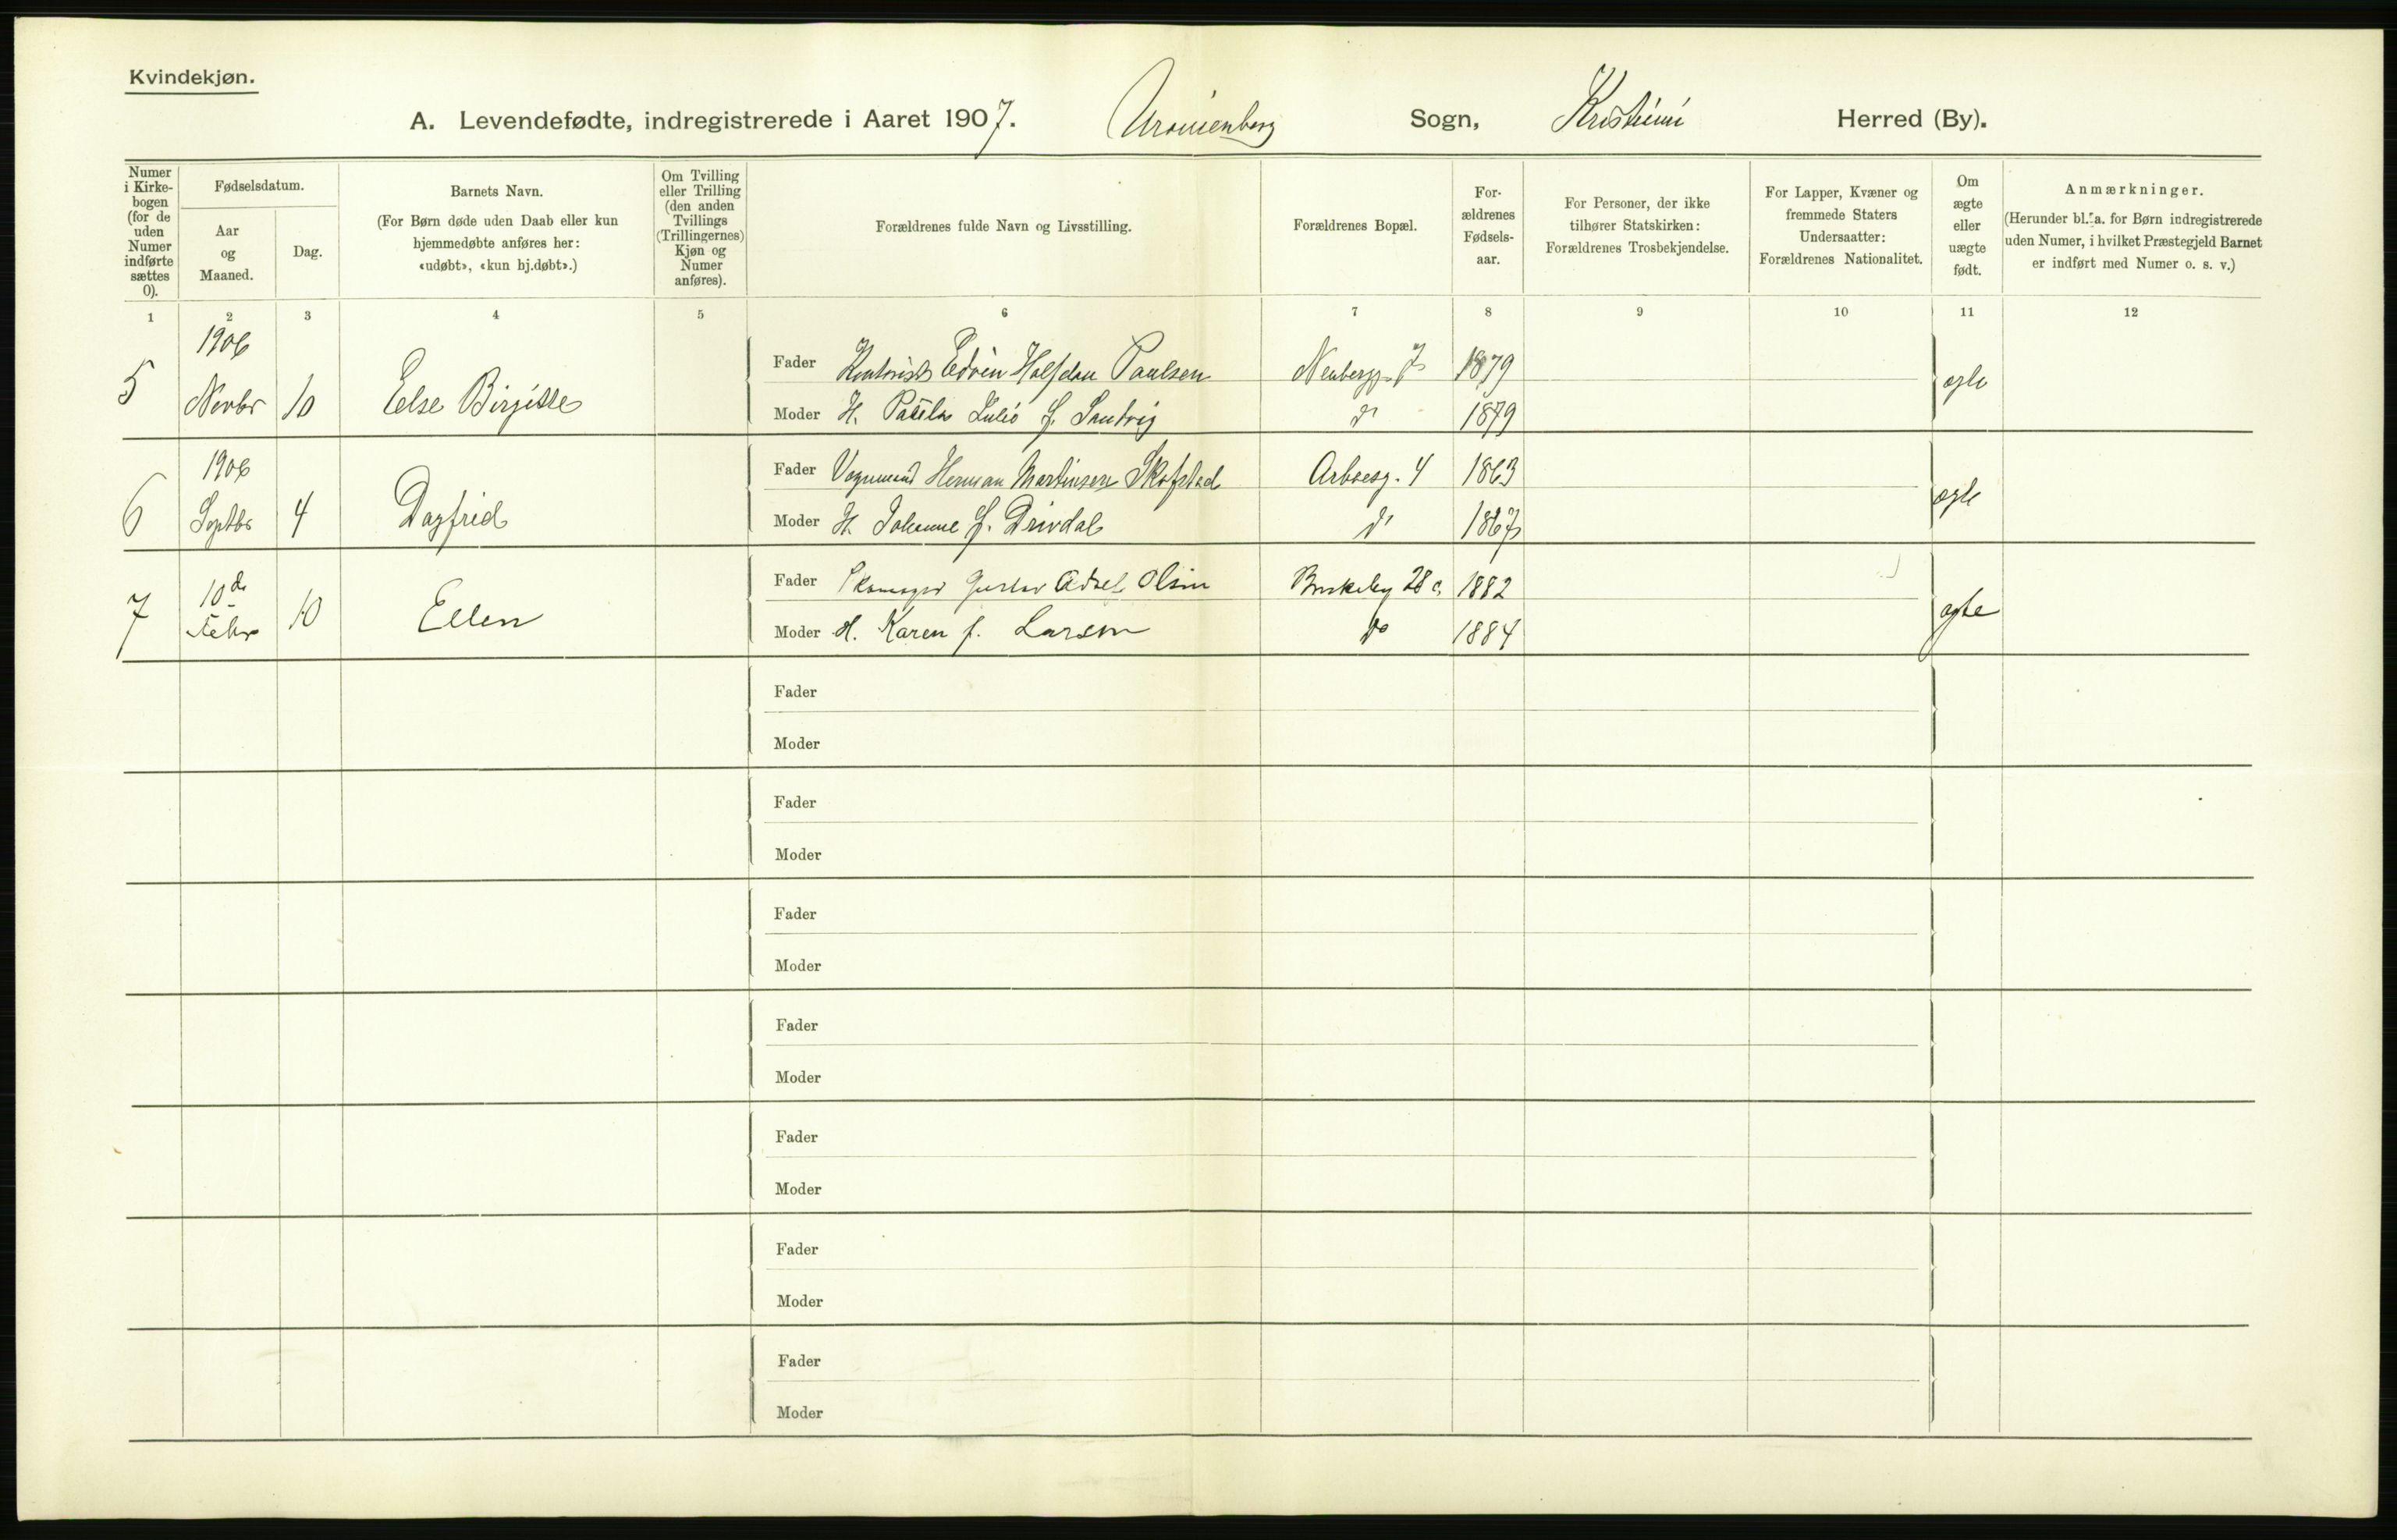 Kvindekjøn.
A. Levendefødte, indregistrerede i Aaret 1907. Uranienborg Sogn, Kristiania Herred (By).
Numer i Kirkebogen (for de uden Numer indførte sættes 0).
Fødselsdatum.
Aar og Maaned.
Dag.
Barnets Navn.
(For Børn døde uden Daab eller kun
hjemmedøbte anføres her:
«udøbt», «kun hj.døbt».)
Om Tvilling
eller Trilling
(den anden
Tvillings
(Trillingernes)
Kjøn og
Numer
anføres).
Forældrenes fulde Navn og Livsstilling.
Forældrenes Bopæl.
For-
ældrenes
Fødsels-
aar.
For Personer, der ikke
tilhører Statskirken:
Forældrenes Trosbekjendelse.
For Lapper, Kvæner og
fremmede Staters
Undersaatter:
Forældrenes Nationalitet.
Om
ægte
eller
uægte
født.
Anmærkninger.
(Herunder bl. a. for Børn indregistrerede
uden Numer, i hvilket Præstegjeld Barnet
er indført med Numer o. s. v.)
1 2 3 4 5 6 7 8 9 10 11 12
5 1906 Novbr 10 Else Birgitte
Fader Kontorist Edvin Halfdan Paulsen Neubergg. 7 1879 ægte
Moder H. Paula Julie f. Sandvig do 1879
6 1906 Septbr 4 Dagfrid
Fader Vognmand Herman Martinsen Skofstad Arboesg. 4 1863 ægte
Moder H. Johanne f. Drivdal do 1867
7 10de Febr 10 Ellen
Fader Skomager Gustav Adolf Olsen Briskeby 28 c. 1882 ægte
Moder H. Karen f. Larsen do 1884
Fader
Moder
Fader
Moder
Fader
Moder
Fader
Moder
Fader
Moder
Fader
Moder
Fader
Moder